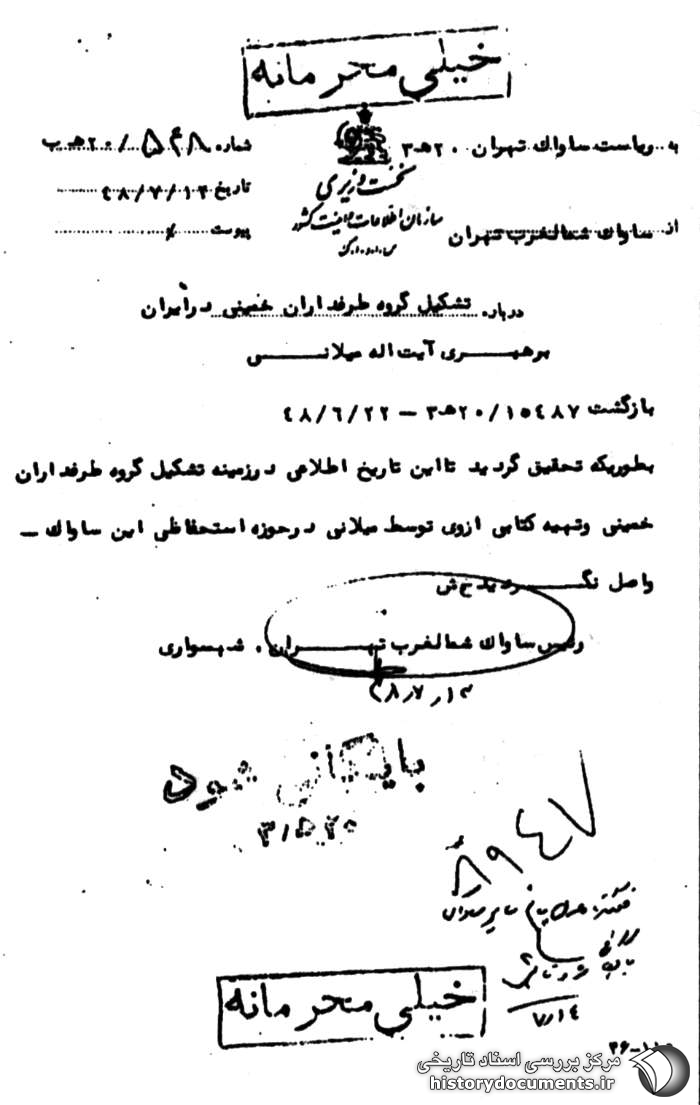 خیلی محرمانه
به ریاست ساواک تهران ۲۰ه‍۳
شماره ۵۴۸ /۲۰ه‍ ب
نخست وزیری
تاریخ ۴۸/۷/۱۳
سازمان اطلاعات و امنیت کشور
س.ا.و.ا.ک
از ساواک شمالغرب تهران
پیوست
درباره تشکیل گروه طرفداران خمینی در ایران
برهبری آیت اله میلانی
بازگشت ۲۰/۱۵۴۸۷ه‍۳ – ۴۸/۶/۲۲
بطوریکه تحقیق گردید تا این تاریخ اطلاعی در زمینه تشکیل گروه طرفداران
خمینی و تهیه کتابی از وی توسط میلانی در حوزه استحفاظی این ساواک –
واصل نگردید خ ش
رئیس ساواک شمالغرب تهران . شهسواری
۴۸٫۷٫۱۳
بایگانی شود
۸۹۴۷
۷٫۱۴
خیلی محرمانه
۳۶-۱۱۵
مرکز بررسی اسناد تاریخی
historydocuments.ir